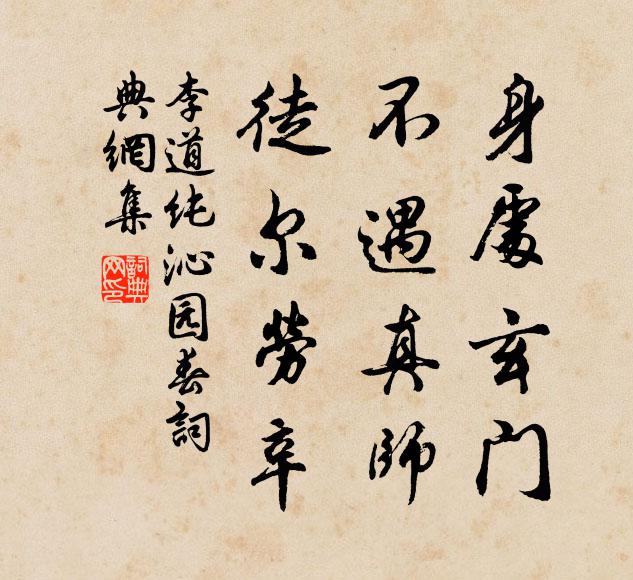 身處玄门
不遇真師
徒尔勞辛
李道纯沁园春詞
典網集
詞典網印